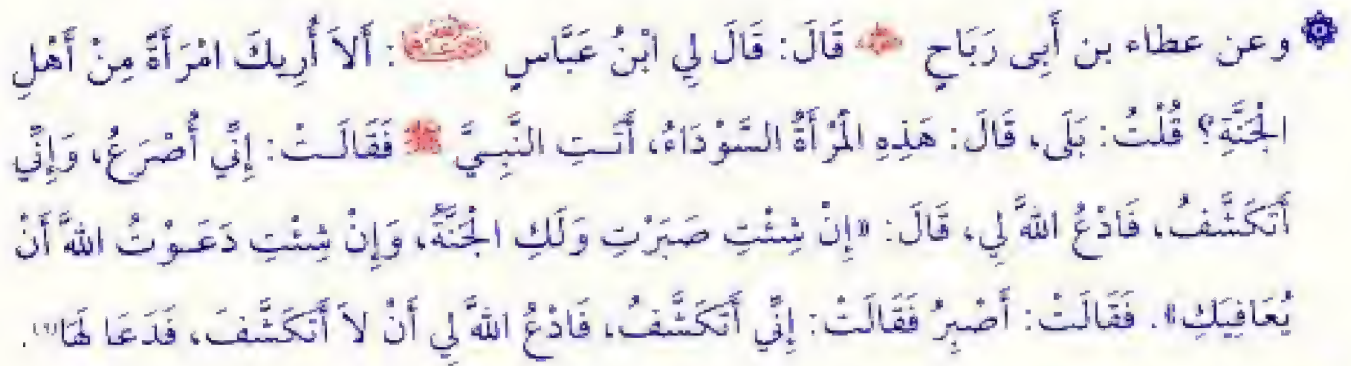 ۞ وعن عطاء بن أَبِى رَبَاحٍ قَالَ: قَالَ لِي ابْنُ عَبَّاسٍ: أَلاَ أُرِيكَ امْرَأَةً مِنْ أَهْلِ
الْجَنَّةِ؟ قُلْتُ: بَلَى، قَالَ: هَذِهِ الْمَرْأَةُ السَّوْدَاءُ، أَتَتِ النَّبِيَّ ﷺ فَقَالَتْ: إِنِّي أُصْرَعُ، وَإِنِّي
أَتَكَشَّفُ، فَادْعُ اللهَ لِي، قَالَ: «إِنْ شِئْتِ صَبَرْتِ وَلَكِ الْجَنَّةُ، وَإِنْ شِئْتِ دَعَوْتُ اللهَ أَنْ
يُعَافِيَكِ». فَقَالَتْ: أَصْبِرُ فَقَالَتْ: إِنِّي أَتَكَشَّفُ، فَادْعُ اللهَ لِي أَنْ لاَ أَتَكَشَّفَ، فَدَعَا لَهَا.